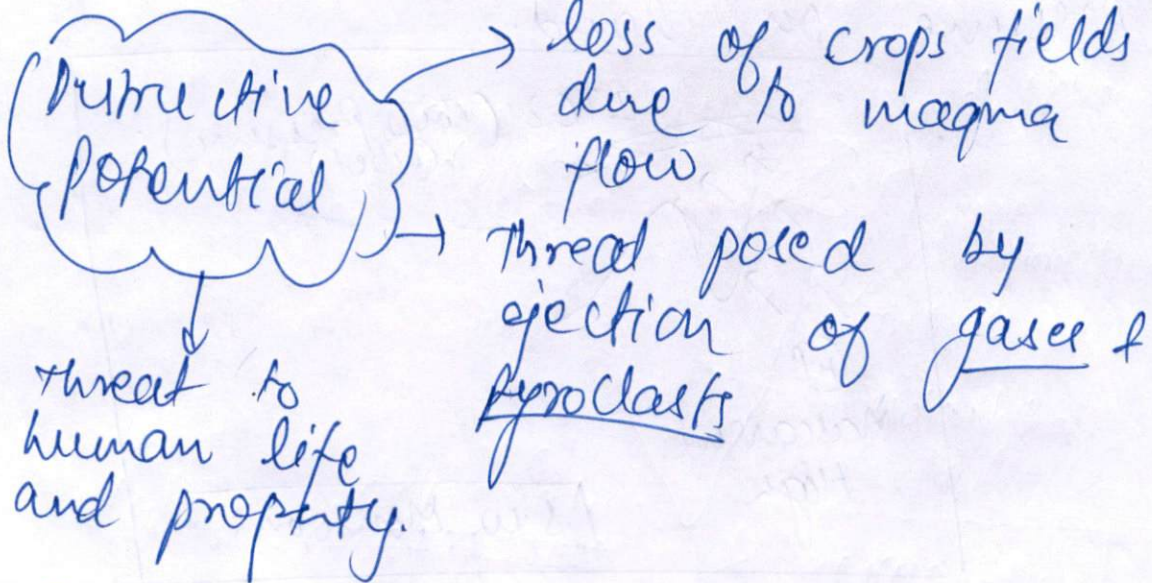 Destructive
Potential
loss of crops fields
due to magma
flow
Threat posed by
ejection of gases &
pyroclasts
Threat to
human life
and property.